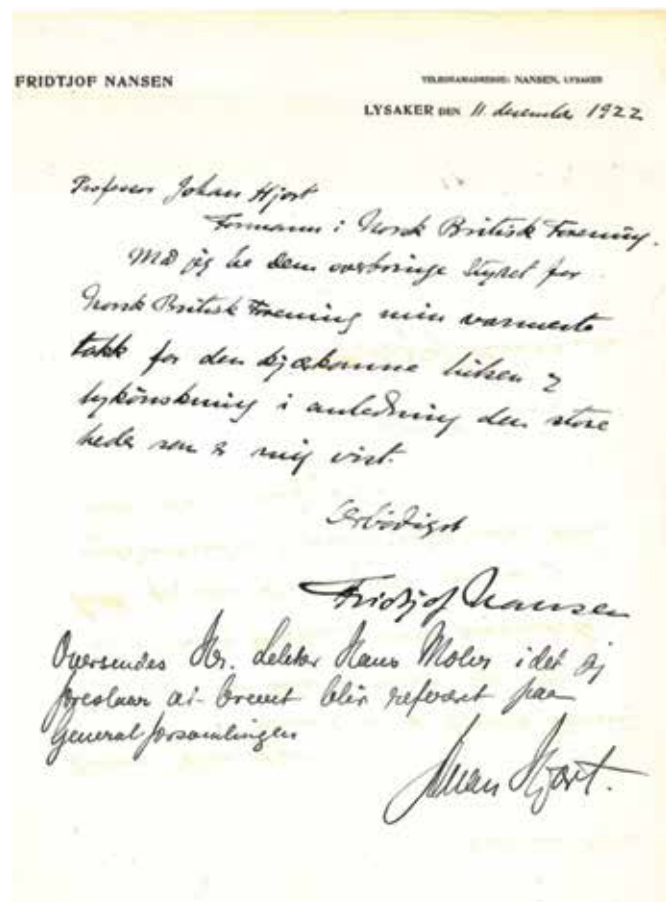 FRIDTJOF NANSEN
TELEGRAMADRESSE: NANSEN, LYSAKER
LYSAKER DEN 11. desember 1922
Professor Johan Hjort
Formann i Norsk Britisk Forening.
Må jeg be dem overbringe styret for
Norsk Britisk Forening min varmeste
takk for den kjækomne hilsen og
lykönskning i anledning den store
heder som er mig vist.
Ærbödigst
Fridtjof Nansen
Oversendes Hr. Lektor Hans Mohr idet jeg
foreslaar at brevet blir referert paa
Generalforsamlingen
Johan Hjort.